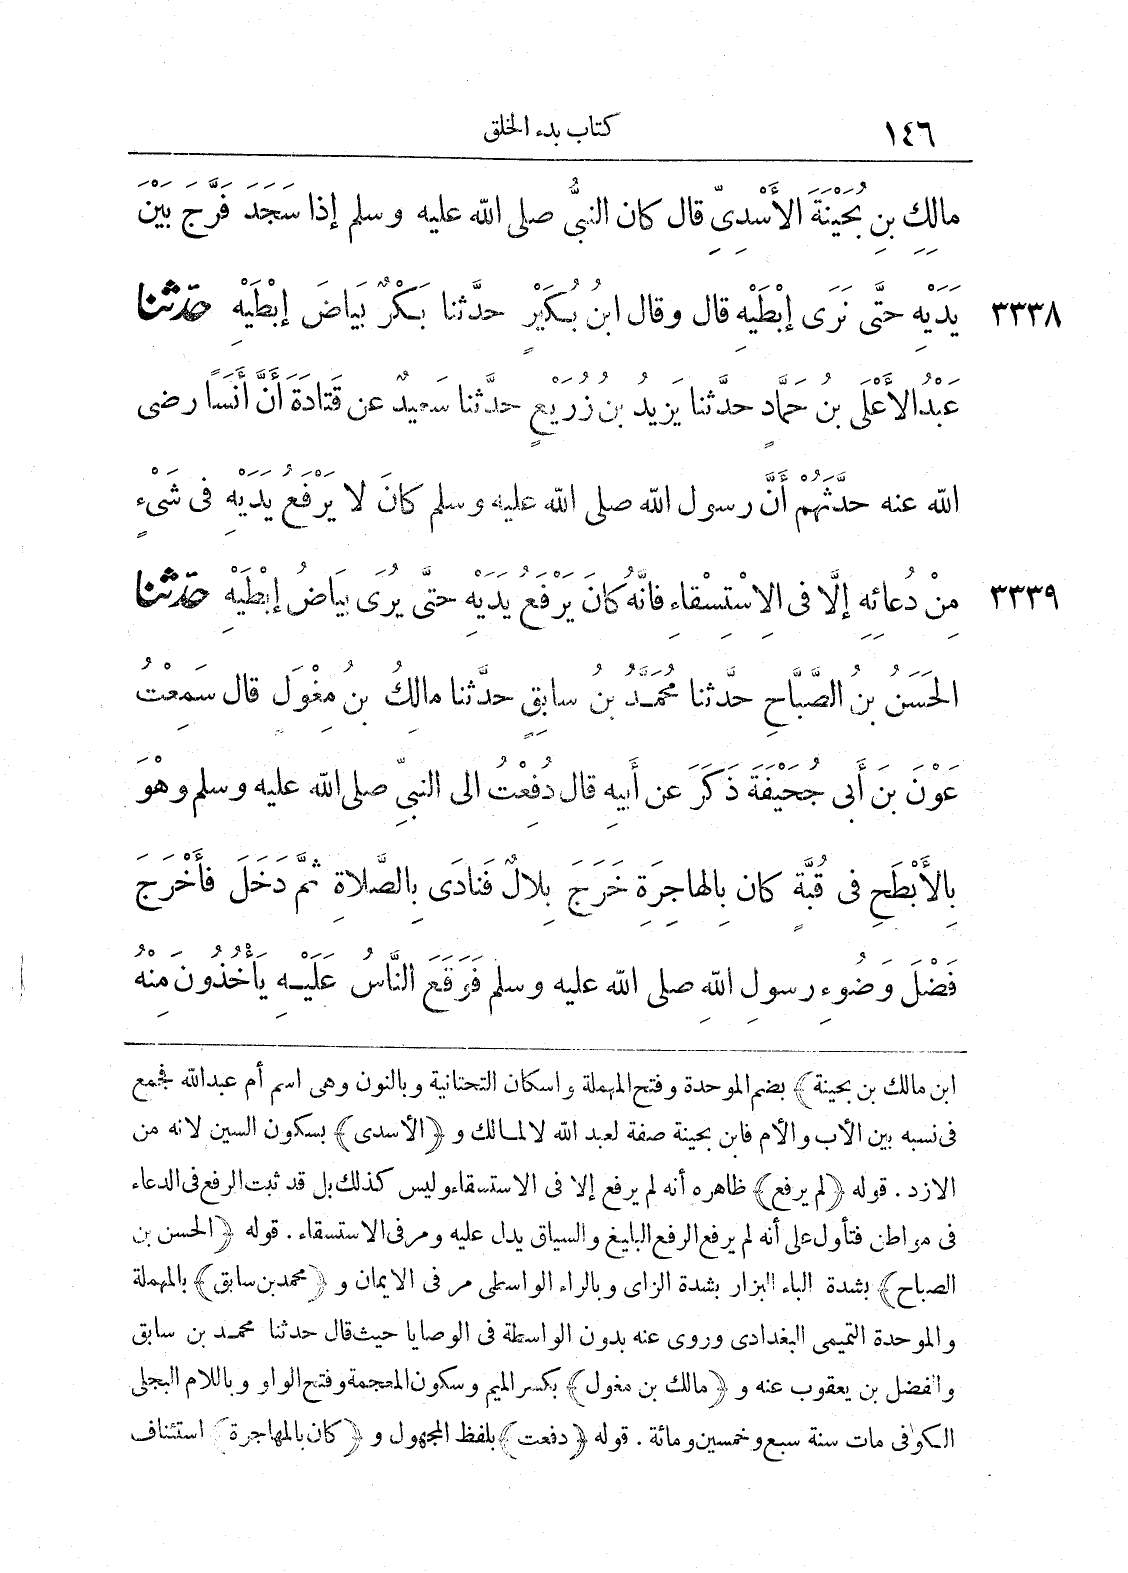 ١٤٦ كتاب بدء الخلق
مالِكِ بنِ بُحَيْنَةَ الأَسْدِيِّ قال كان النبيُّ صلى الله عليه وسلم إذا سَجَدَ فَرَّجَ بَيْنَ
٣٣٣٨ يَدَيْهِ حتَّى نَرَى إبْطَيْهِ قال وقال ابنُ بُكَيْرٍ حدَّثنا بَكْرٌ بَيَاضَ إبْطَيْهِ حدّثنا
عَبْدُ الأَعْلَى بنُ حَمَّادٍ حدَّثنا يَزِيدُ بنُ زُرَيْعٍ حدَّثنا سَعِيدٌ عن قَتادَةَ أَنَّ أَنَسًا رضى
الله عنه حدَّثَهُمْ أَنَّ رسول الله صلى الله عليه وسلم كانَ لا يَرْفَعُ يَدَيْهِ فى شَىْءٍ
٣٣٣٩ مِنْ دُعائِهِ إلَّا فى الِاسْتِسْقاءِ فانَّهُ كانَ يَرْفَعُ يَدَيْهِ حتَّى يُرَى بيَاضُ إبْطَيْهِ حدّثنا
الحَسَنُ بنُ الصَّبَّاحِ حدَّثنا مُحَمَّدُ بنُ سابِقٍ حدَّثنا مالِكُ بنُ مِغْوَلٍ قال سَمِعْتُ
عَوْنَ بنَ أَبى جُحَيْفَةَ ذَكَرَ عن أَبيهِ قال دُفِعْتُ الى النبيِّ صلى الله عليه وسلم وهْوَ
بِالأَبْطَحِ فى قُبَّةٍ كان بِالهاجِرَةِ خَرَجَ بِلالٌ فَنادَى بِالصَّلاةِ ثمَّ دَخَلَ فأَخْرَجَ
فَضْلَ وَضُوءِ رسولِ اللهِ صلى الله عليه وسلم فَوَقَعَ النَّاسُ عَلَيْهِ يَأْخُذُونَ مِنْهُ
ابن مالك بن بحينة﴾ بضم الموحدة وفتح المهملة واسكان التحتانية وبالنون وهى اسم أم عبدالله فجمع
فى نسبه بين الأب والأم فابن بحينة صفة لعبد الله لا لمالك و ﴿الأسدى﴾ بسكون السين لانه من
الازد . قوله ﴿لم يرفع﴾ ظاهره أنه لم يرفع إلا فى الاستسقاء وليس كذلك بل قد ثبت الرفع فى الدعاء
فى مواطن فتأول على أنه لم يرفع الرفع البليغ والسياق يدل عليه ومر فى الاستسقاء . قوله ﴿الحسن بن
الصباح﴾ بشدة الباء البزار بشدة الزاى وبالراء الواسطى مر فى الايمان و ﴿محمد بن سابق﴾ بالمهملة
والموحدة التميمى البغدادى وروى عنه بدون الواسطة فى الوصايا حيث قال حدثنا محمد بن سابق
والفضل بن يعقوب عنه و ﴿مالك بن مغول﴾ بكسر الميم وسكون المعجمة وفتح الواو وباللام البجلى
الكوفى مات سنة سبع وخمسين ومائة . قوله ﴿دفعت﴾ بلفظ المجهول و ﴿كان بالهاجرة﴾ استئناف